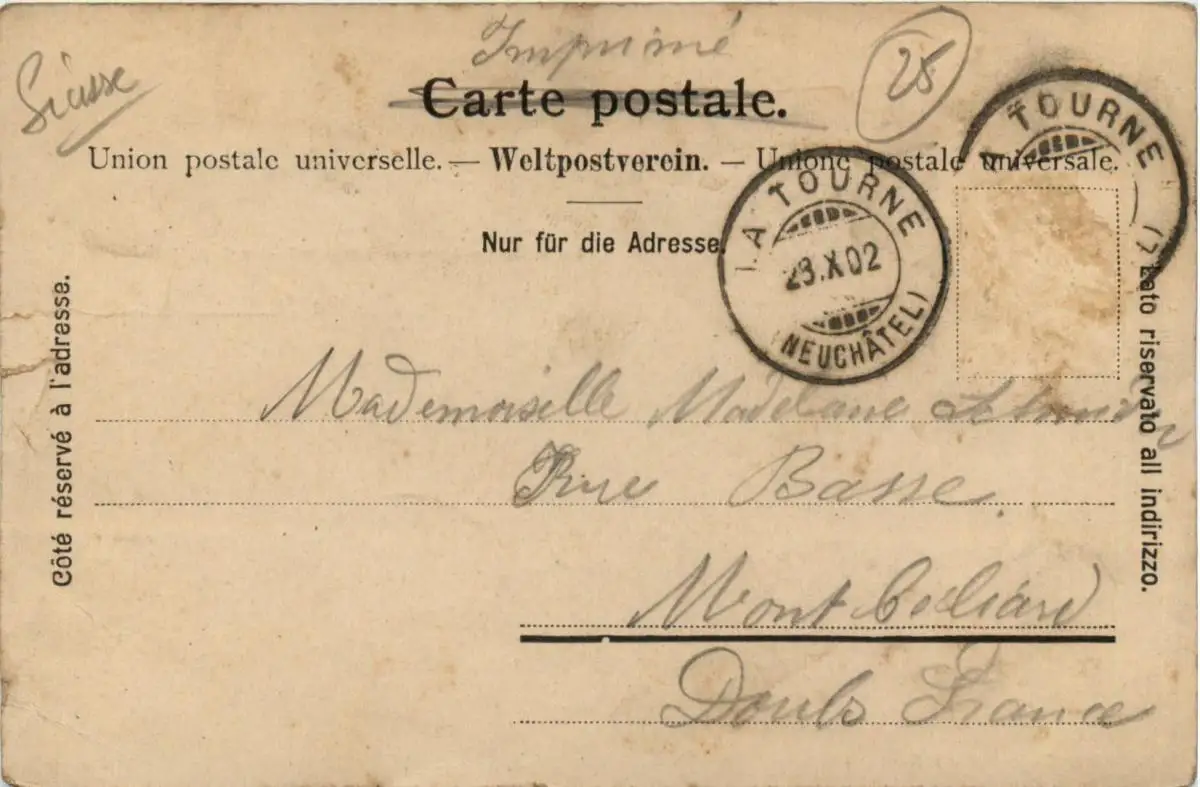 Imprimé
Suisse
25
Carte postale.
Union postale universelle. — Weltpostverein. — Unione postale universale.
Nur für die Adresse.
LA TOURNE
LA TOURNE
23.X.02
(NEUCHÂTEL)
Côté réservé à l'adresse.
Lato riservato all indirizzo.
Mademoiselle Madelaine
Rue Basse.
Montbeliard
Doubs France